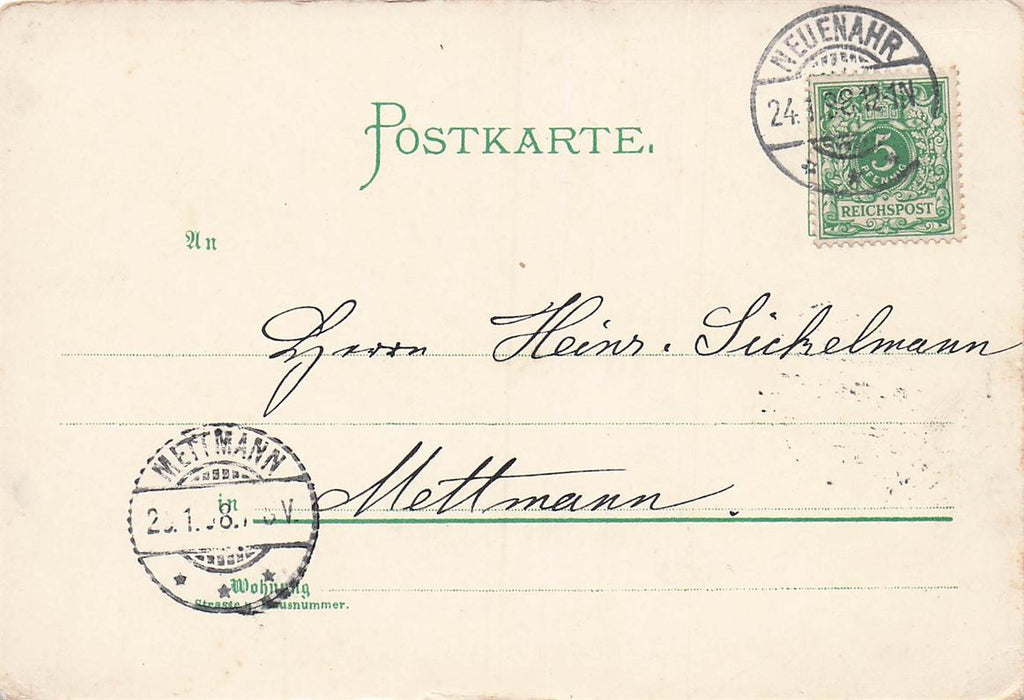 POSTKARTE.
NEUENAHR
12-1N
5
PFENNIG
REICHSPOST
An
Herrn Heinr. Sickelmann
METTMANN
in Mettmann.
Wohnung
Strasse u. Hausnummer.